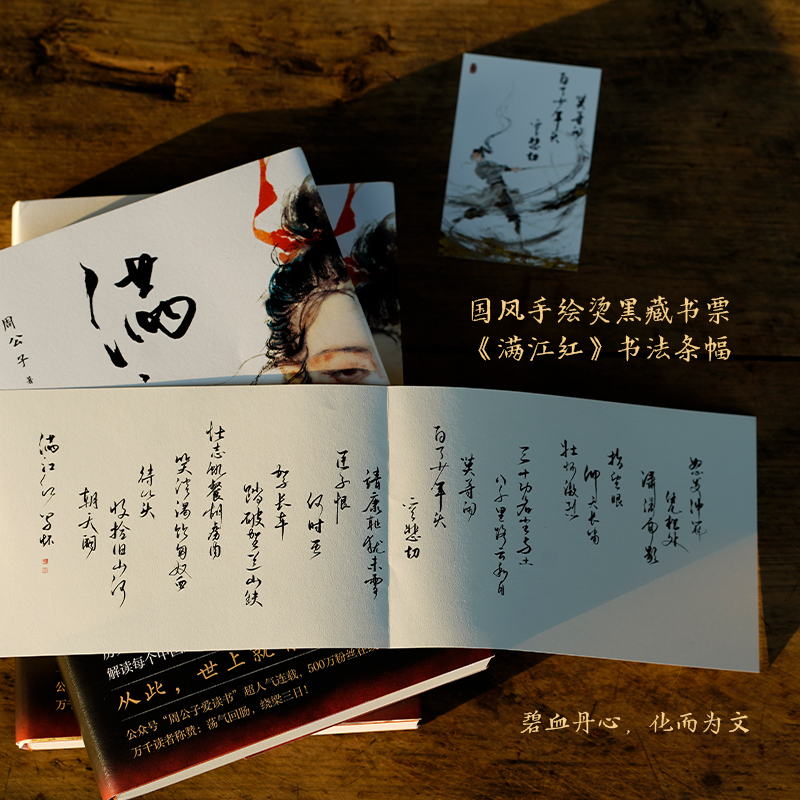 莫等闲
白了少年头
空悲切
国风手绘烫黑藏书票
《满江红》书法条幅
满
周公子 著
怒发冲冠
凭栏处
潇潇雨歇
抬望眼
仰天长啸
壮怀激烈
三十功名尘与土
八千里路云和月
莫等闲
白了少年头
空悲切
靖康耻犹未雪
臣子恨
何时灭
驾长车
踏破贺兰山缺
壮志饥餐胡虏肉
笑谈渴饮匈奴血
待从头
收拾旧山河
朝天阙
满江红 写怀
解读每个中
从此，世上就
公众号“周公子爱读书”超人气连载，500万粉丝在
万千读者称赞：荡气回肠，绕梁三日！
公
万千
碧血丹心，化而为文